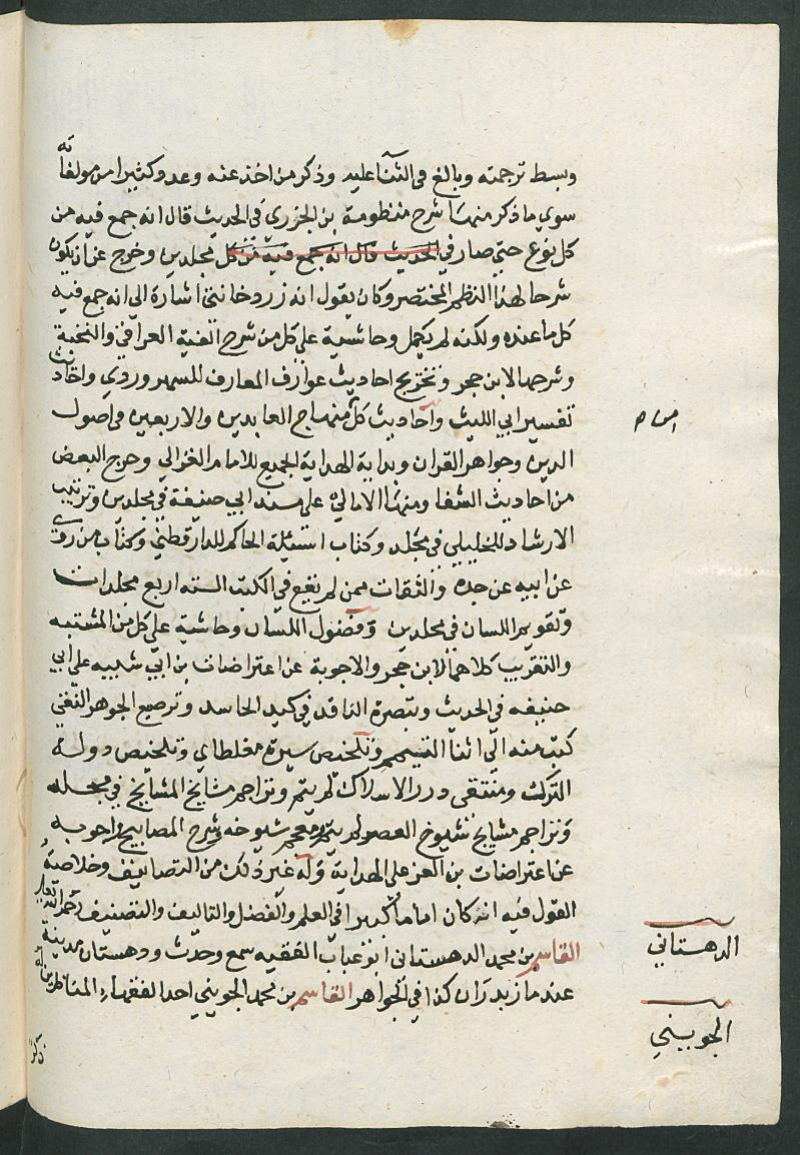 وبسط ترجمته وبالغ في الثنآ عليه وذكر من اخذ عنه وعدد وكثيرا من مولفاته
سوي ما ذكر منها شرح منظومة بن الجزري في الحديث قال انه جمع فيه من
كل نوع حتي صار في الحديث قال انه جمع فيه من كل مجلدين وخرج عن ان يكون
شرحا لهذا النظم المختصر وكان يقول انه زردخانتي اشارة الى انه جمع فيه
كل ما عنده ولكنه لم يكمل وحاشية على كل من شرح الفية العراقي والنخبة
وشرحها لابن حجر وتخريج احاديث عوارف المعارف للسهروردي واحاديث
تفسير ابي الليث واحاديث كل منهاج العابدين والاربعين في اصول
الدين وجواهر القران وبداية الهداية الجميع للامام الغزالي وخرج البعض
من احاديث الشفا ومنها الامالي على مسند ابي حنيفة في مجلدين وترتيب
الارشاد للخليلي في مجلد وكتاب اسئلة الحاكم للدارقطني وكتاب من روى
عن ابيه عن جده والثقات ممن لم يقع في الكتب الستة اربع مجلدات
وتقويم اللسان في مجلدين وفضول اللسان وحاشية على كل من المشتبه
والتقريب كلاهما لابن حجر والاجوبة عن اعتراضات بن ابي شيبه على ابي
حنيفه في الحديث وتبصرة الناقد في كيد الحاسد وترصيع الجوهر النقي
كتب منه الي اثنا التيمم وتلخيص سيرة مغلطاي وتلخيص دولة
الترك ومنتقى درر الاسلاك لم يتم وتراجم مشايخ المشايخ في مجلد
وتراجم مشايخ شيوخ العصر لم يتم ومعجم شيوخه وشرح المصابيح واجوبه
عن اعتراضات بن العز على الهداية وله غير ذلك من التصانيف وخلاصة
القول فيه انه كان اماما كبيرا في العلم والفضل والتاليف والتصنيف رحمه الله تعالى
القاسم بن محمد الدهستاني ابو غياث الفقيه سمع وحدث ودهستان مدينة
عند مازندران كذا في الجواهر القاسم بن محمد الجويني احد الفقهاء المناظرين له
الدهستاني
الجويني